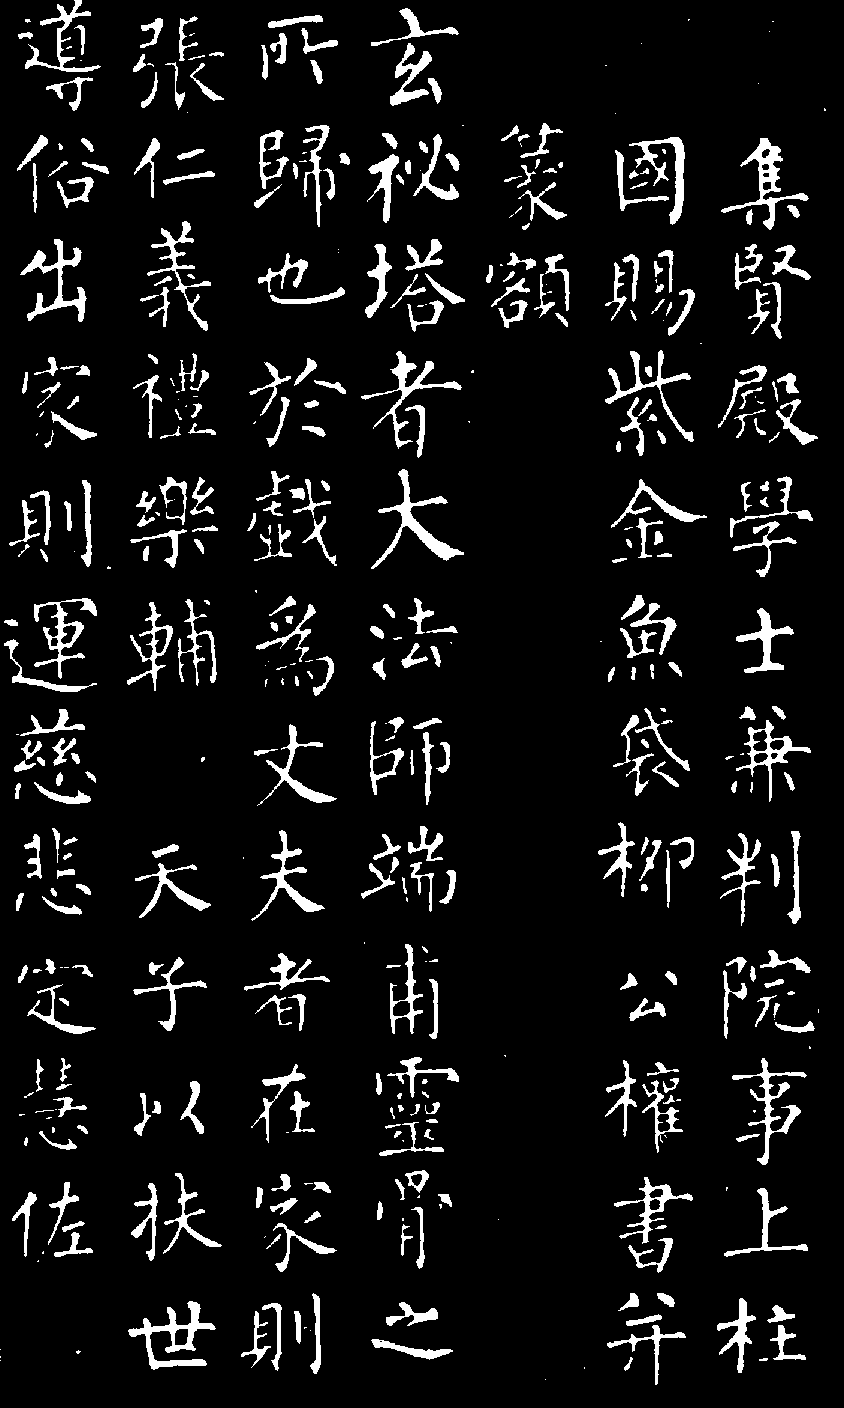 集賢殿學士兼判院事上柱
國賜紫金魚袋柳公權書并
篆額
玄祕塔者大法師端甫靈骨之
所歸也於戲爲丈夫者在家則
張仁義禮樂輔天子以扶世
導俗出家則運慈悲定慧佐